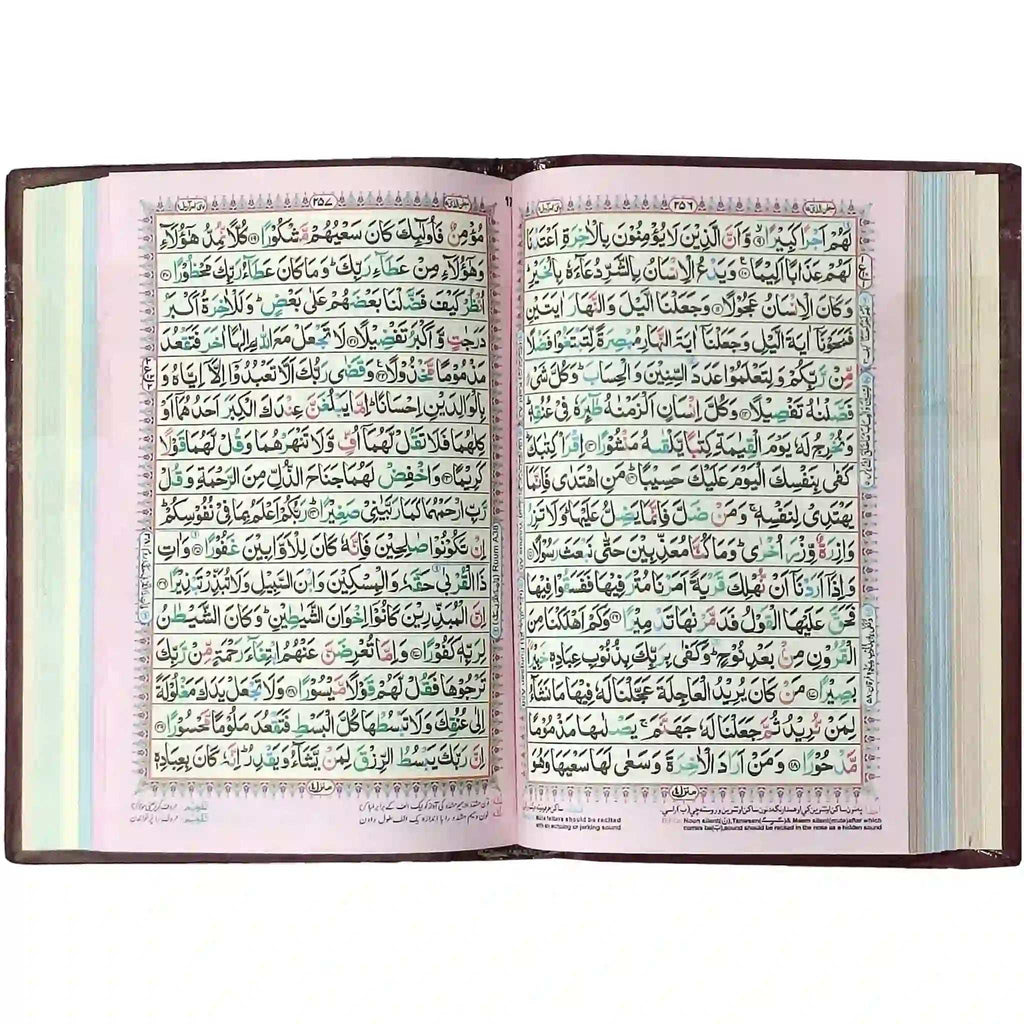 ٢٥٦
لَهُمْ اَجْرًا كَبِيْرًا ۙ۹ وَّاَنَّ الَّذِيْنَ لَا يُؤْمِنُوْنَ بِالْاٰخِرَةِ اَعْتَدْنَا
لَهُمْ عَذَابًا اَلِيْمًا ۧ۱۰ وَيَدْعُ الْاِنْسَانُ بِالشَّرِّ دُعَآءَهٗ بِالْخَيْرِ ؕ
وَكَانَ الْاِنْسَانُ عَجُوْلًا ۱۱ وَجَعَلْنَا الَّيْلَ وَالنَّهَارَ اٰيَتَيْنِ
فَمَحَوْنَاۤ اٰيَةَ الَّيْلِ وَجَعَلْنَاۤ اٰيَةَ النَّهَارِ مُبْصِرَةً لِّتَبْتَغُوْا فَضْلًا
مِّنْ رَّبِّكُمْ وَلِتَعْلَمُوْا عَدَدَ السِّنِيْنَ وَالْحِسَابَ ؕ وَكُلَّ شَيْءٍ
فَصَّلْنٰهُ تَفْصِيْلًا ۱۲ وَكُلَّ اِنْسَانٍ اَلْزَمْنٰهُ طٰٓئِرَهٗ فِيْ عُنُقِهٖ ؕ
وَنُخْرِجُ لَهٗ يَوْمَ الْقِيٰمَةِ كِتٰبًا يَّلْقٰىهُ مَنْشُوْرًا ۱۳ اِقْرَاْ كِتٰبَكَ ؕ
كَفٰى بِنَفْسِكَ الْيَوْمَ عَلَيْكَ حَسِيْبًا ؕ۱۴ مَنِ اهْتَدٰى فَاِنَّمَا
يَهْتَدِيْ لِنَفْسِهٖ ۚ وَمَنْ ضَلَّ فَاِنَّمَا يَضِلُّ عَلَيْهَا ؕ وَلَا تَزِرُ
وَازِرَةٌ وِّزْرَ اُخْرٰى ؕ وَمَا كُنَّا مُعَذِّبِيْنَ حَتّٰى نَبْعَثَ رَسُوْلًا ۱۵
وَاِذَاۤ اَرَدْنَاۤ اَنْ نُّهْلِكَ قَرْيَةً اَمَرْنَا مُتْرَفِيْهَا فَفَسَقُوْا فِيْهَا
فَحَقَّ عَلَيْهَا الْقَوْلُ فَدَمَّرْنٰهَا تَدْمِيْرًا ۱۶ وَكَمْ اَهْلَكْنَا مِنَ
الْقُرُوْنِ مِنْۢ بَعْدِ نُوْحٍ ؕ وَكَفٰى بِرَبِّكَ بِذُنُوْبِ عِبَادِهٖ خَبِيْرًۢا
بَصِيْرًا ۱۷ مَنْ كَانَ يُرِيْدُ الْعَاجِلَةَ عَجَّلْنَا لَهٗ فِيْهَا مَا نَشَآءُ
لِمَنْ نُّرِيْدُ ثُمَّ جَعَلْنَا لَهٗ جَهَنَّمَ ۚ يَصْلٰىهَا مَذْمُوْمًا
مَّدْحُوْرًا ۱۸ وَمَنْ اَرَادَ الْاٰخِرَةَ وَسَعٰى لَهَا سَعْيَهَا وَهُوَ
Noun silent(ن), Tanween & Meem silent(mute) after which
comes ba(ب), sound should be recited in the nose as a hidden sound
٢٥٧
مُؤْمِنٌ فَاُولٰٓئِكَ كَانَ سَعْيُهُمْ مَّشْكُوْرًا ۱۹ كُلًّا نُّمِدُّ هٰۤؤُلَآءِ
وَهٰۤؤُلَآءِ مِنْ عَطَآءِ رَبِّكَ ؕ وَمَا كَانَ عَطَآءُ رَبِّكَ مَحْظُوْرًا ۲۰
اُنْظُرْ كَيْفَ فَضَّلْنَا بَعْضَهُمْ عَلٰى بَعْضٍ ؕ وَلَلْاٰخِرَةُ اَكْبَرُ
دَرَجٰتٍ وَّاَكْبَرُ تَفْضِيْلًا ۲۱ لَا تَجْعَلْ مَعَ اللّٰهِ اِلٰهًا اٰخَرَ فَتَقْعُدَ
مَذْمُوْمًا مَّخْذُوْلًا ۲۲ وَقَضٰى رَبُّكَ اَلَّا تَعْبُدُوْۤا اِلَّاۤ اِيَّاهُ وَ
بِالْوَالِدَيْنِ اِحْسَانًا ؕ اِمَّا يَبْلُغَنَّ عِنْدَكَ الْكِبَرَ اَحَدُهُمَاۤ اَوْ
كِلٰهُمَا فَلَا تَقُلْ لَّهُمَاۤ اُفٍّ وَّلَا تَنْهَرْهُمَا وَقُلْ لَّهُمَا قَوْلًا
كَرِيْمًا ۲۳ وَاخْفِضْ لَهُمَا جَنَاحَ الذُّلِّ مِنَ الرَّحْمَةِ وَقُلْ
رَّبِّ ارْحَمْهُمَا كَمَا رَبَّيٰنِيْ صَغِيْرًا ؕ۲۴ رَبُّكُمْ اَعْلَمُ بِمَا فِيْ نُفُوْسِكُمْ ؕ
اِنْ تَكُوْنُوْا صٰلِحِيْنَ فَاِنَّهٗ كَانَ لِلْاَوَّابِيْنَ غَفُوْرًا ۲۵ وَاٰتِ
ذَا الْقُرْبٰى حَقَّهٗ وَالْمِسْكِيْنَ وَابْنَ السَّبِيْلِ وَلَا تُبَذِّرْ تَبْذِيْرًا ۲۶
اِنَّ الْمُبَذِّرِيْنَ كَانُوْۤا اِخْوَانَ الشَّيٰطِيْنِ ؕ وَكَانَ الشَّيْطٰنُ
لِرَبِّهٖ كَفُوْرًا ۲۷ وَاِمَّا تُعْرِضَنَّ عَنْهُمُ ابْتِغَآءَ رَحْمَةٍ مِّنْ رَّبِّكَ
تَرْجُوْهَا فَقُلْ لَّهُمْ قَوْلًا مَّيْسُوْرًا ۲۸ وَلَا تَجْعَلْ يَدَكَ مَغْلُوْلَةً
اِلٰى عُنُقِكَ وَلَا تَبْسُطْهَا كُلَّ الْبَسْطِ فَتَقْعُدَ مَلُوْمًا مَّحْسُوْرًا ۲۹
اِنَّ رَبَّكَ يَبْسُطُ الرِّزْقَ لِمَنْ يَّشَآءُ وَيَقْدِرُ ؕ اِنَّهٗ كَانَ بِعِبَادِهٖ
letters should be recited
with an echoing or jerking sound